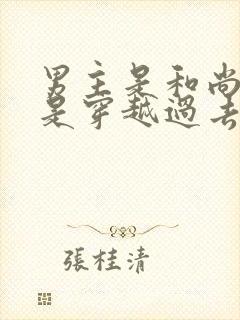 男主是和尚
是穿越過去
張桂清